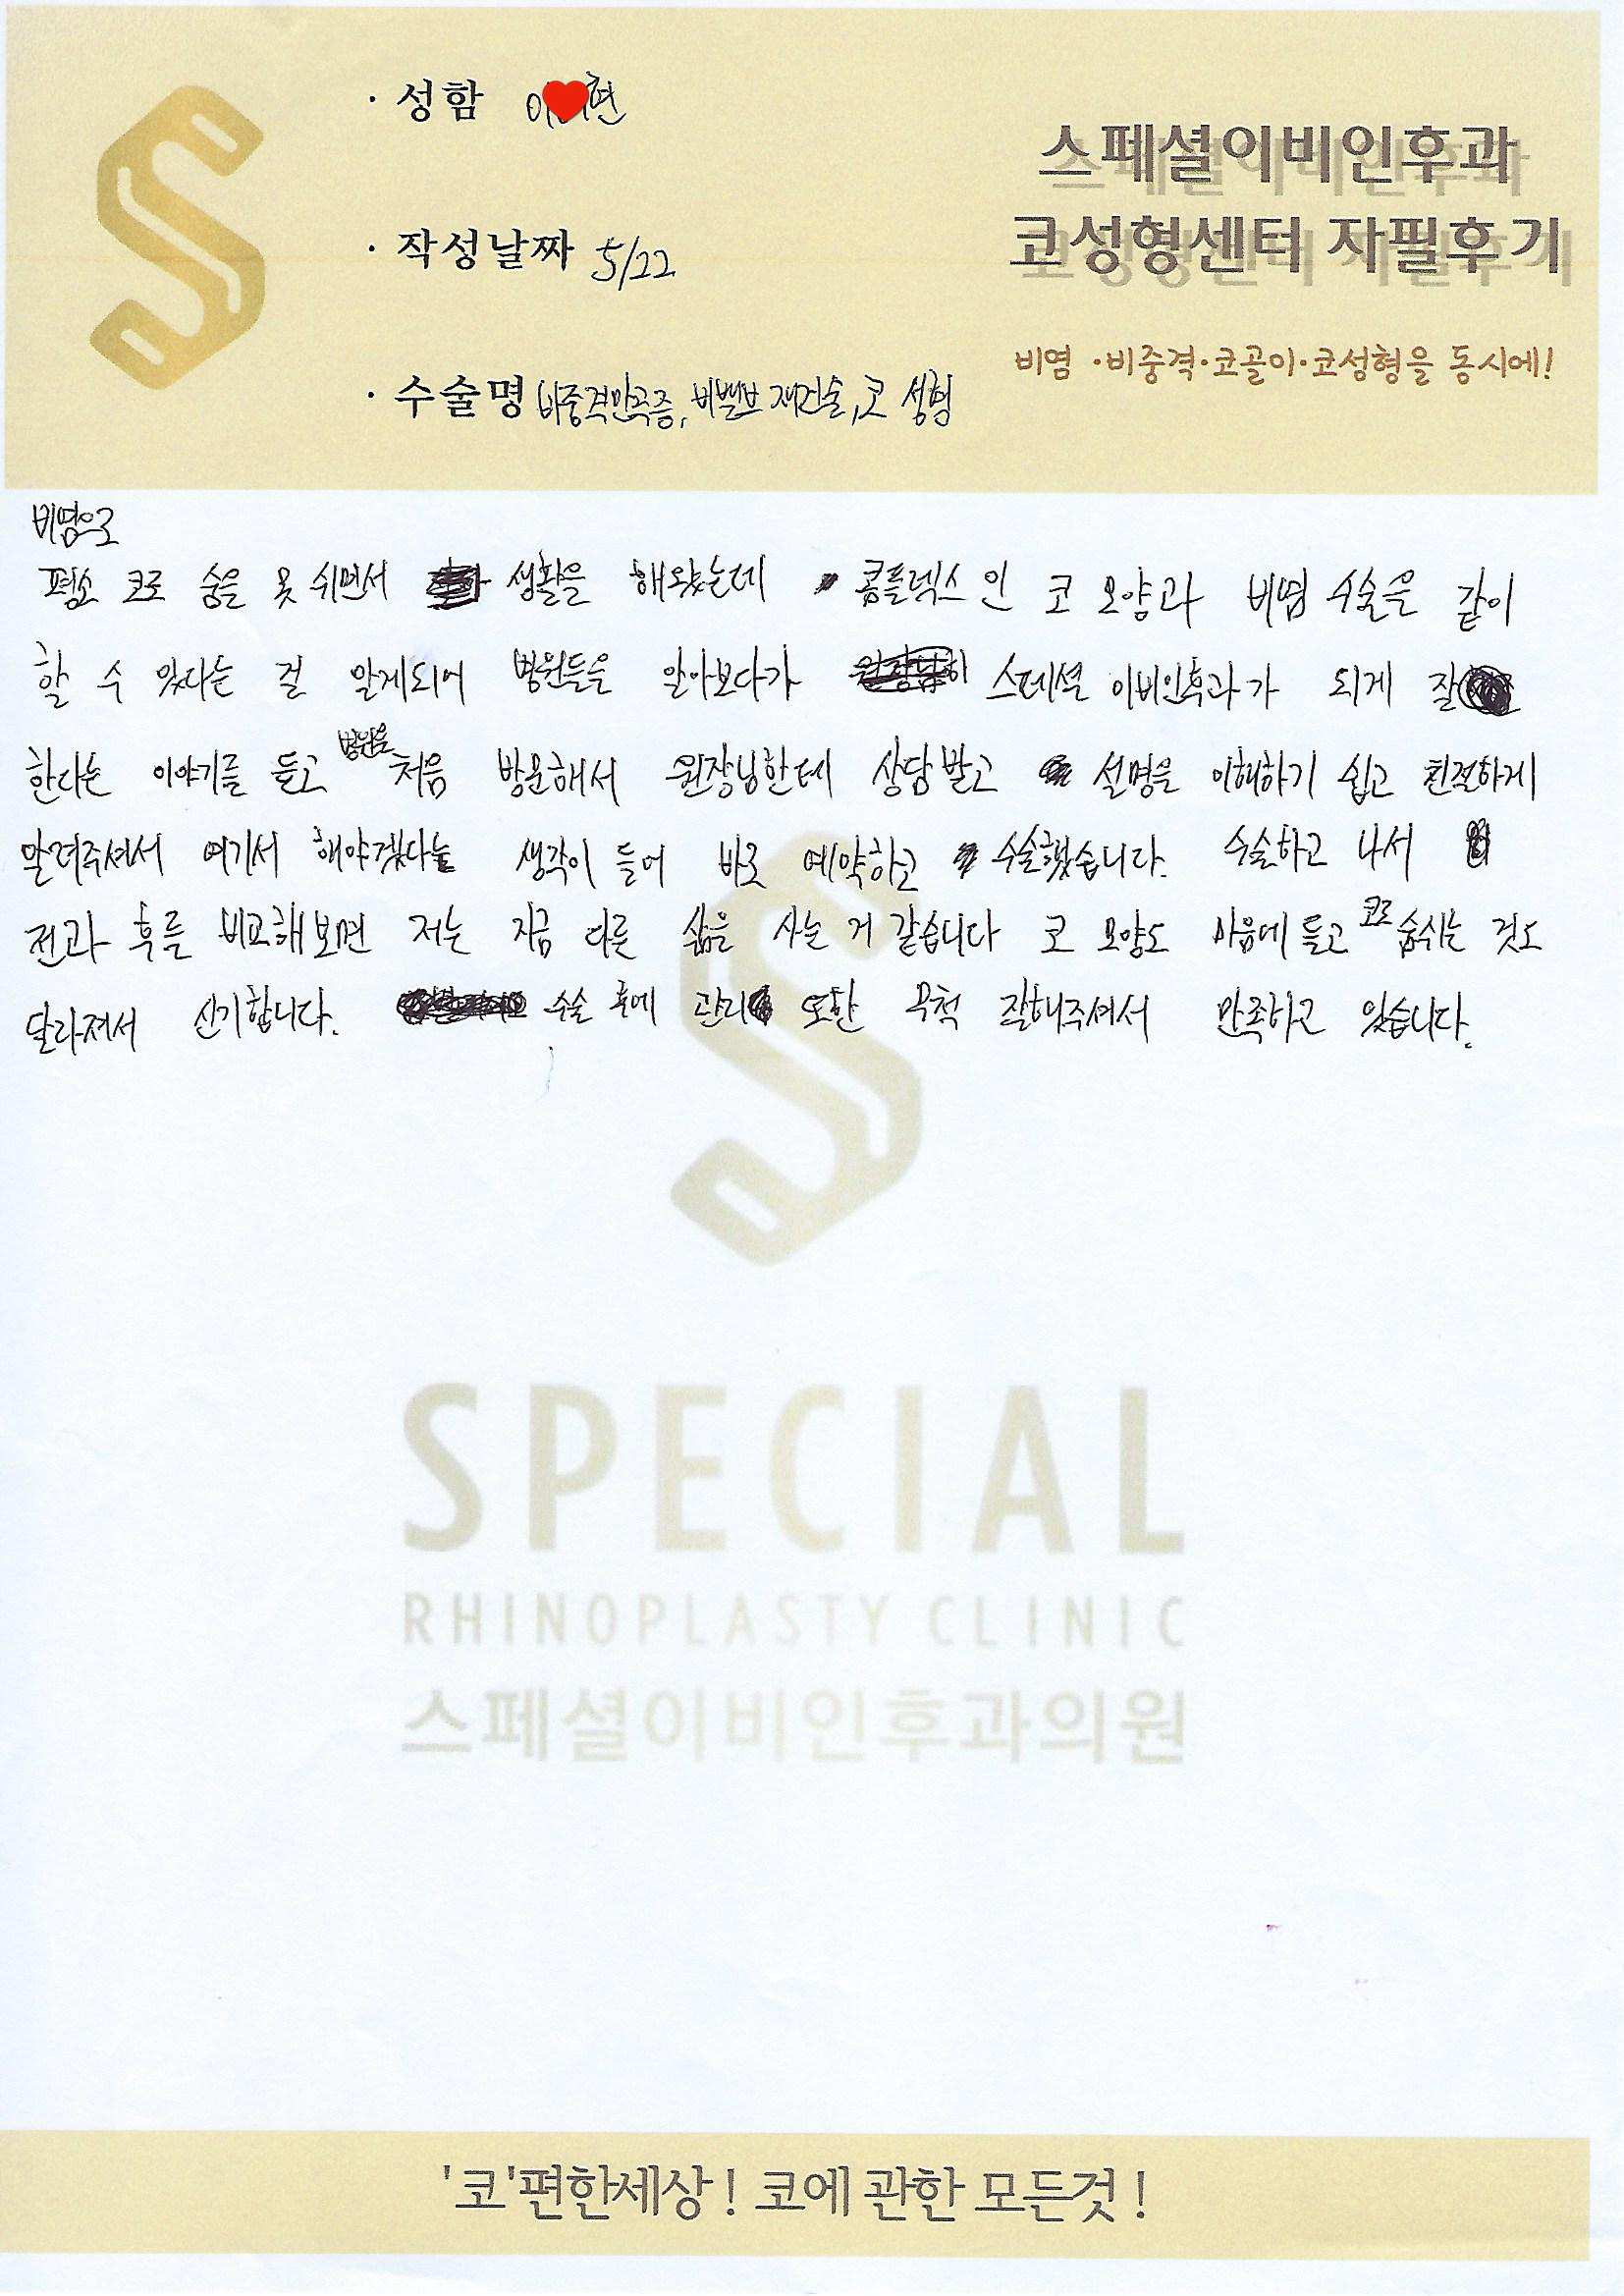 · 성함 이 현
스페셜이비인후과
· 작성날짜 5/22
코성형센터 자필후기
비염 ·비중격·코골이·코성형을 동시에!
· 수술명 비중격만곡증, 비밸브 재건술, 코 성형
비염으로
평소 코로 숨을 못 쉬면서 생활을 해왔는데 콤플렉스인 코 모양과 비염 수술을 같이
할 수 있다는 걸 알게되어 병원들을 알아보다가 스페셜 이비인후과가 되게 잘
한다는 이야기를 듣고 병원을 처음 방문해서 원장님한테 상담 받고 설명을 이해하기 쉽고 친절하게
알려주셔서 여기서 해야겠다는 생각이 들어 바로 예약하고 수술했습니다. 수술하고 나서
전과 후를 비교해보면 저는 지금 다른 삶을 사는 거 같습니다 코 모양도 마음에 들고 코로 숨쉬는 것도
달라져서 신기합니다. 수술 후에 관리 또한 무척 잘해주셔서 만족하고 있습니다.
SPECIAL
RHINOPLASTY CLINIC
스페셜이비인후과의원
'코'편한세상! 코에 관한 모든것!